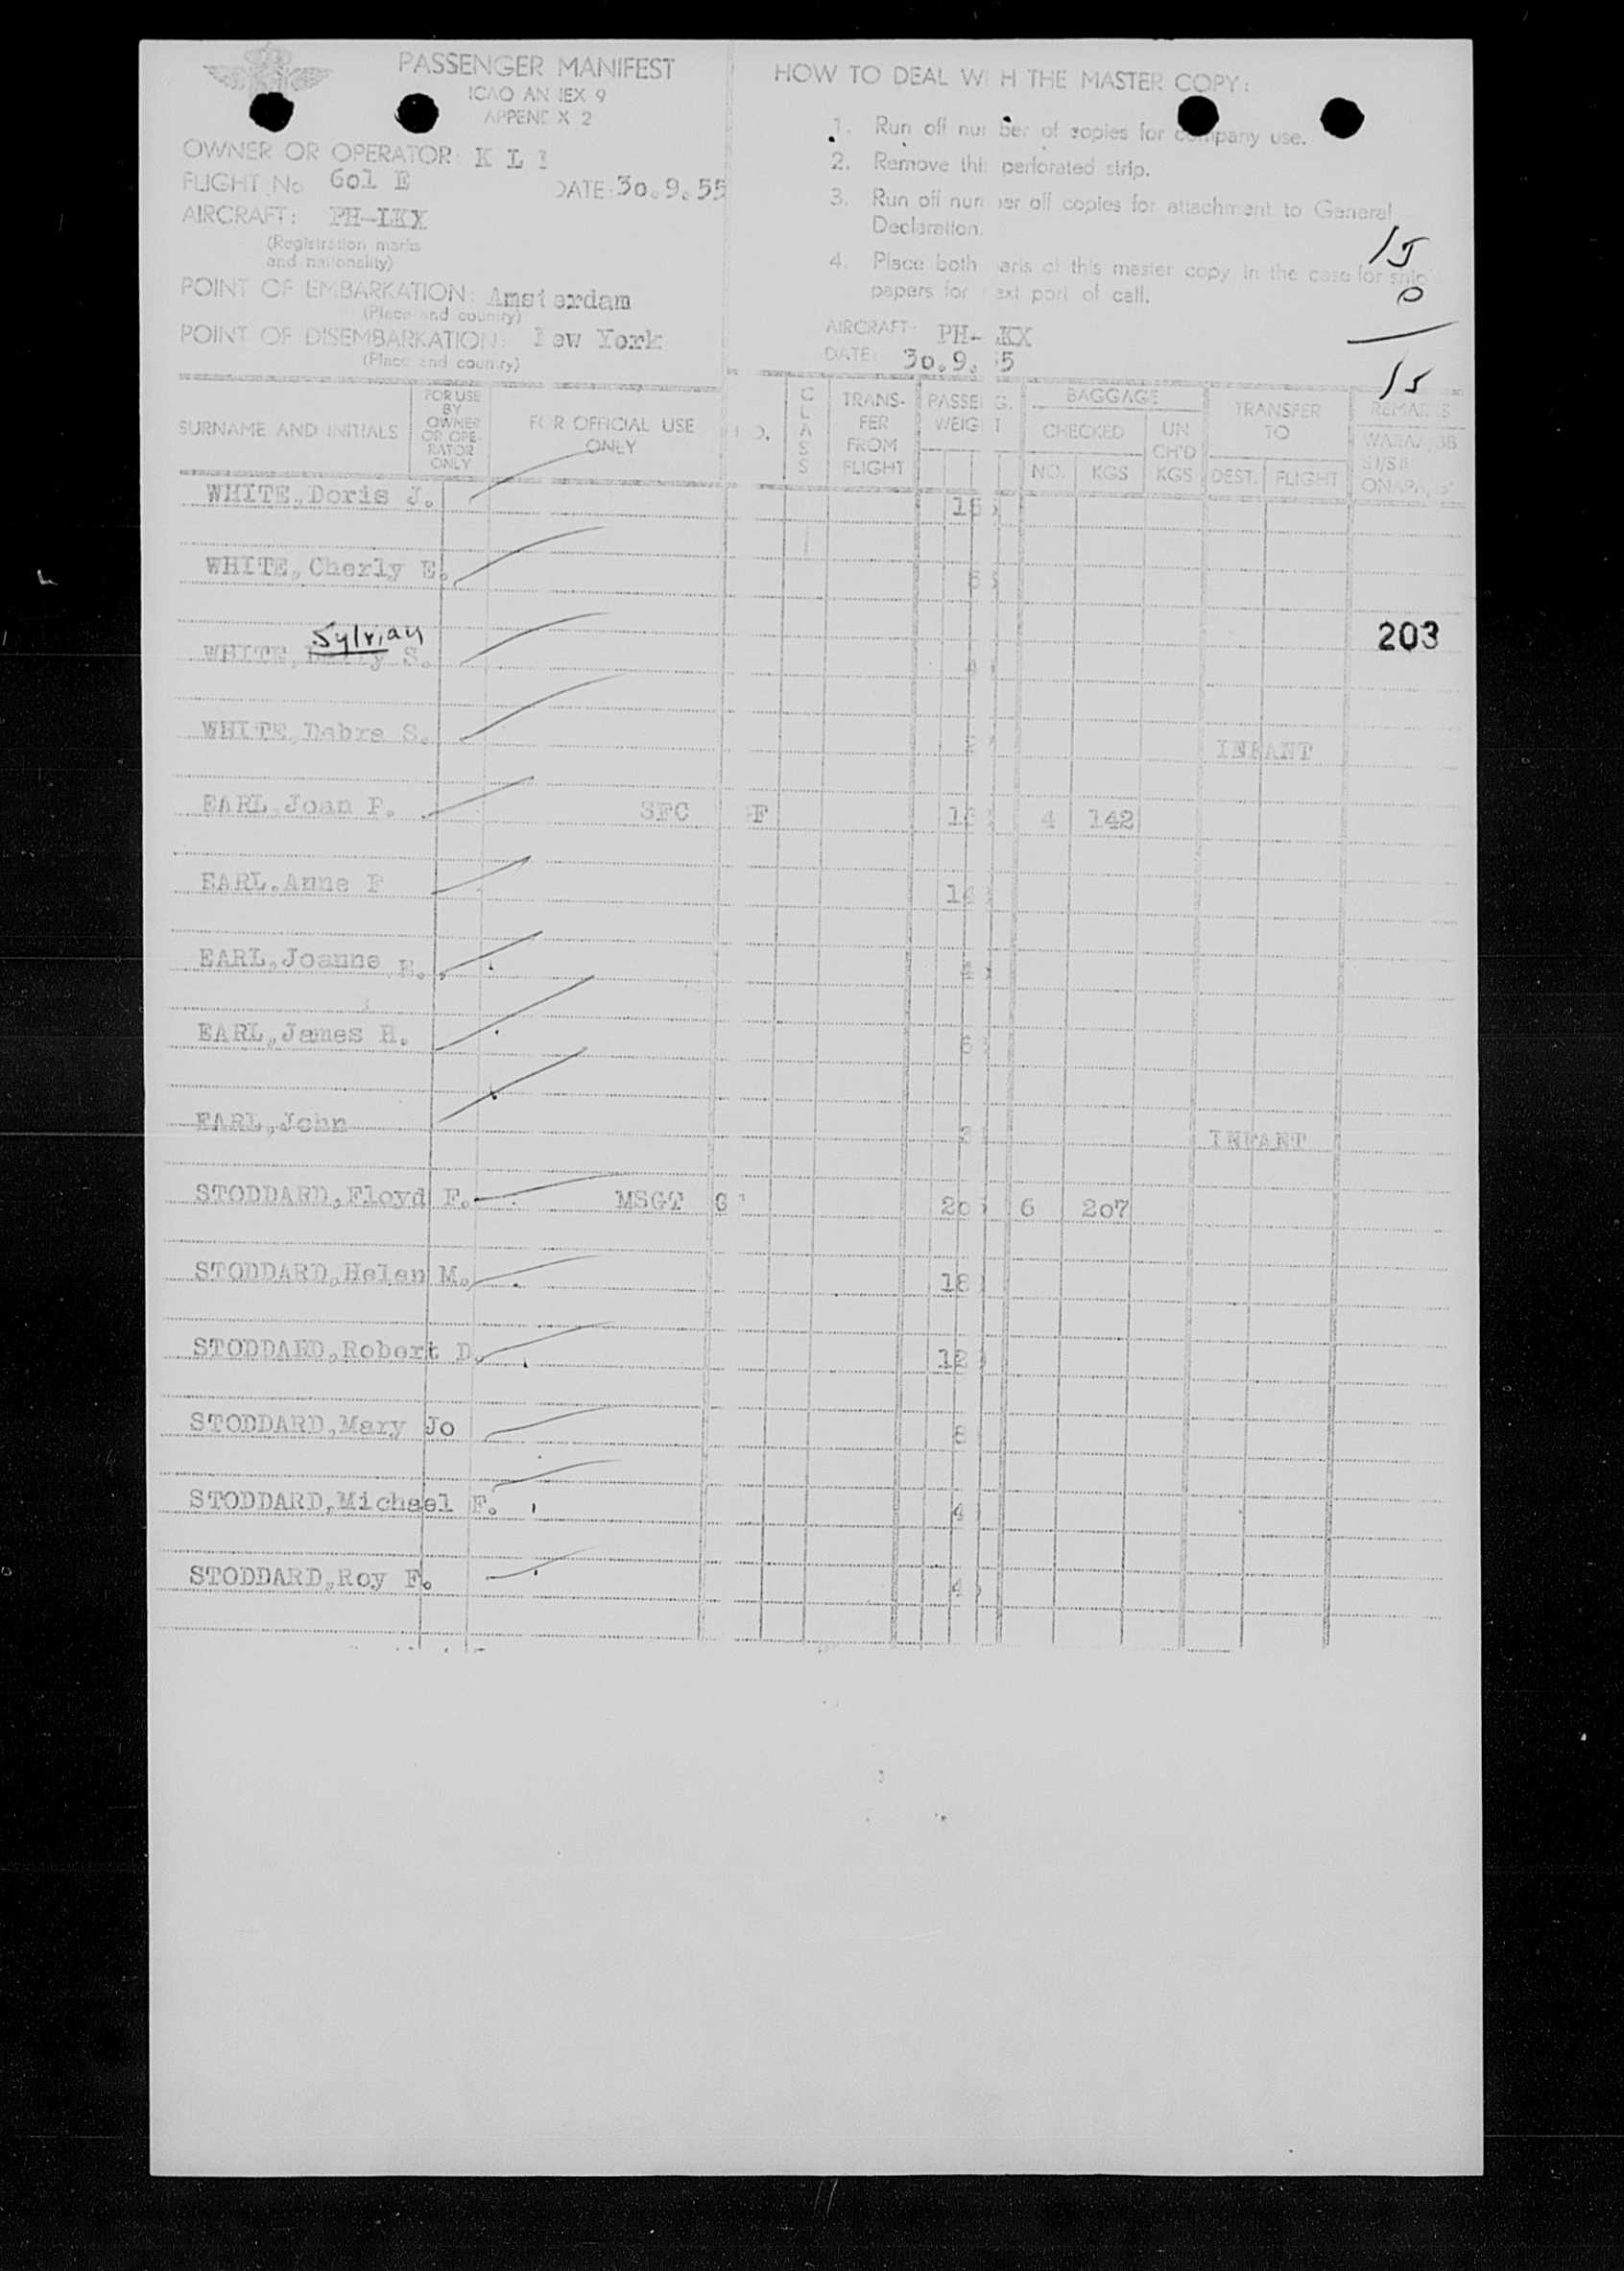 PASSENGER MANIFEST
ICAO ANNEX 9
APPENDIX 2
OWNER OR OPERATOR: K L
FLIGHT No 601 E DATE: 30.9.55
AIRCRAFT: PH-LKX
(Registration marks
and nationality)
POINT OF EMBARKATION: Amsterdam
(Place and country)
POINT OF DISEMBARKATION: New York
(Place and country)
HOW TO DEAL WITH THE MASTER COPY:
1. Run off number of copies for company use.
2. Remove this perforated strip.
3. Run off number off copies for attachment to General
Declaration.
4. Place both parts of this master copy in the case for ship
papers for next port of call.
15
0
15
AIRCRAFT: PH- KX
DATE: 30.9. 5
SURNAME AND INITIALS
FOR USE
BY
OWNER
OR OPE-
RATOR
ONLY
FOR OFFICIAL USE
ONLY
CLASS
TRANS-
FER
FROM
FLIGHT
PASSENG.
WEIGHT
BAGGAGE
CHECKED
NO. KGS
UN
CH'D
KGS
TRANSFER
TO
DEST. FLIGHT
REMARKS
WHITE, Doris J.
WHITE, Cherly E.
Sylvian
WHITE, S.
203
WHITE, Debra S. INFANT
EARL Joan P. SFC F 4 142
EARL, Anne F
EARL, Joanne E.
EARL, James H.
EARL, John INFANT
STODDARD, Floyd F. MSGT G 20 6 207
STODDARD, Helen M. 18
STODDARD, Robert D. 12
STODDARD, Mary Jo 8
STODDARD, Michael F. 4
STODDARD, Roy F. 4